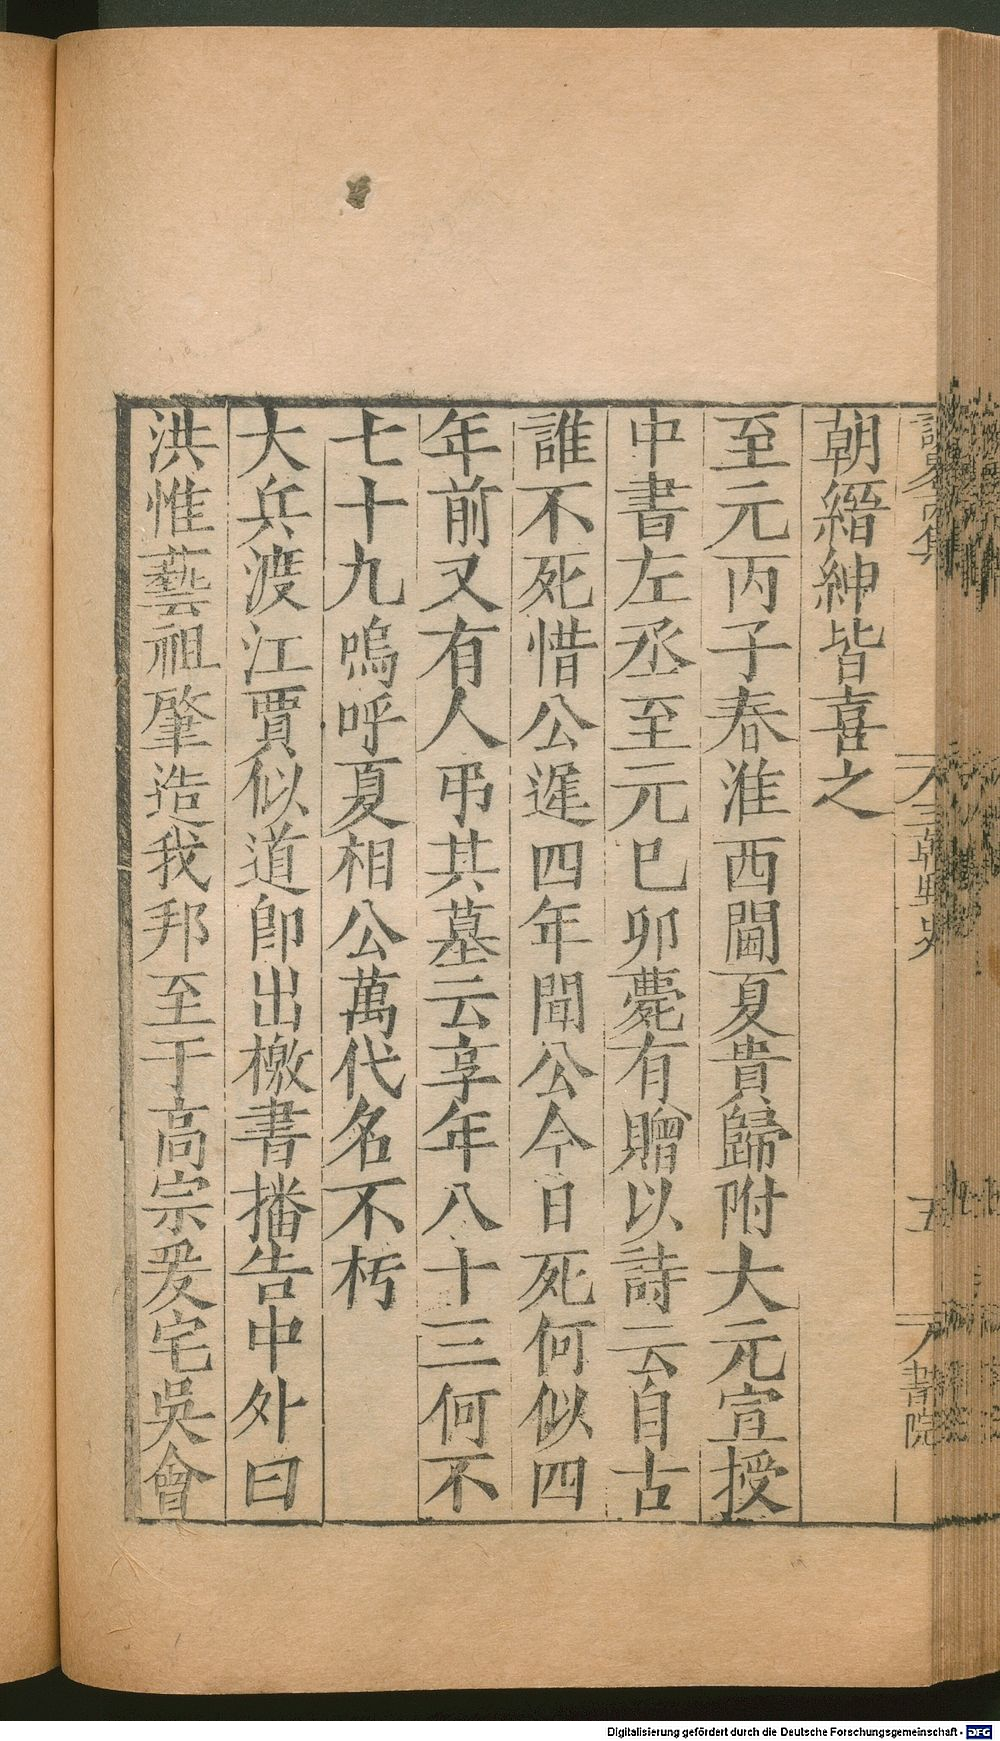 朝縉紳皆喜之
至元丙子春淮西閫夏貴歸附大元宣授
中書左丞至元巳卯薨有贈以詩云自古
誰不死惜公遲四年聞公今日死何似四
年前又有人弔其墓云享年八十三何不
七十九嗚呼夏相公萬代名不朽
大兵渡江賈似道卽出檄書播告中外曰
洪惟藝祖肇造我邦至于高宗爰宅吳會
三朝野史
五
書院
Digitalisierung gefördert durch die Deutsche Forschungsgemeinschaft - DFG